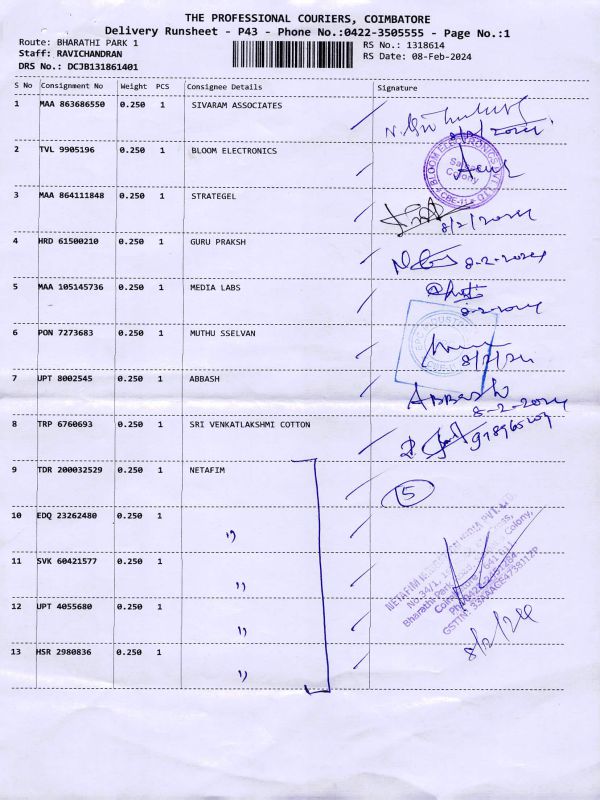 THE PROFESSIONAL COURIERS, COIMBATORE
Delivery Runsheet - P43 - Phone No.:0422-3505555 - Page No.:1
Route: BHARATHI PARK 1
Staff: RAVICHANDRAN
DRS No.: DCJB131861401
RS No.: 1318614
RS Date: 08-Feb-2024
S No Consignment No Weight PCS Consignee Details Signature
1 MAA 863686550 0.250 1 SIVARAM ASSOCIATES
8/2/2024
2 TVL 9905196 0.250 1 BLOOM ELECTRONICS
BLOOM ELECTRONICS PVT LTD
Saibaba
Colony
CBE-11
3 MAA 864111848 0.250 1 STRATEGEL
8/2/2024
4 HRD 61500210 0.250 1 GURU PRAKSH
8-2-2024
5 MAA 105145736 0.250 1 MEDIA LABS
8-2-2024
6 PON 7273683 0.250 1 MUTHU SSELVAN
8/2/24
7 UPT 8002545 0.250 1 ABBASH
ABBash
8-2-2024
8 TRP 6760693 0.250 1 SRI VENKATLAKSHMI COTTON
9 TDR 200032529 0.250 1 NETAFIM
5
10 EDQ 23262480 0.250 1 "
11 SVK 60421577 0.250 1 "
12 UPT 4055680 0.250 1 "
13 HSR 2980836 0.250 1 "
NETAFIM
INDIA PVT. LTD.
No.34/1,
Bharathi Park
Colony,
8/2/24